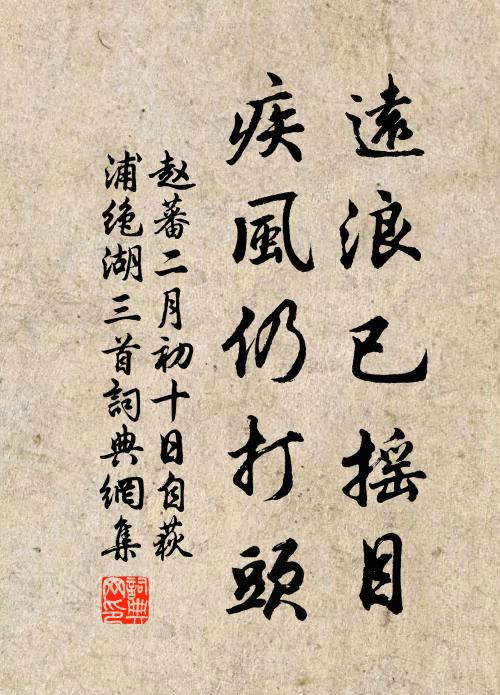 遠浪已摇目
疾風仍打頭
赵蕃二月初十日自荻
浦绝湖三首詞典網集
詞典
网印